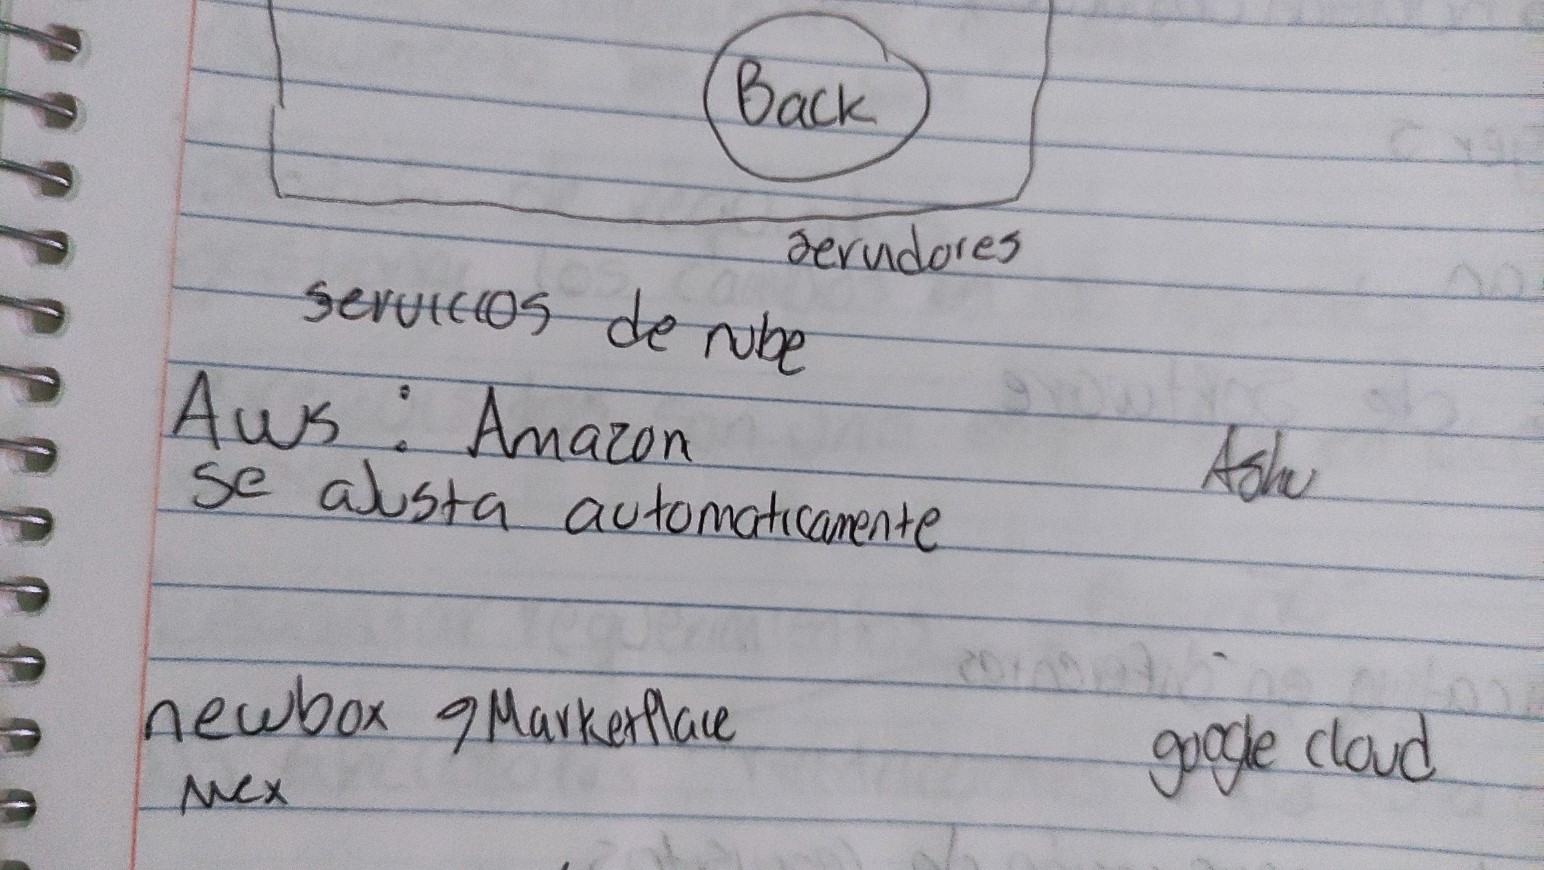 Back
servidores
servicios de nube
Aws : Amazon
se ajusta automaticamente
newbox → MarketPlace
mex
google cloud